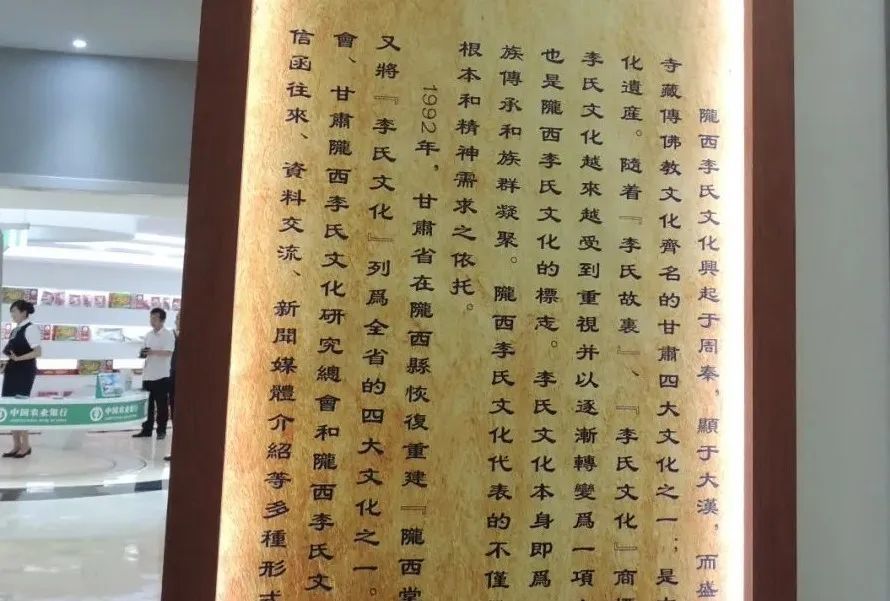 隴西李氏文化興起于周秦，顯于大漢，而盛
寺藏傳佛教文化齊名的甘肅四大文化之一；是
化遺産。隨着『李氏故裏』、『李氏文化』商
李氏文化越來越受到重視并以逐漸轉變爲一項
也是隴西李氏文化的標志。李氏文化本身即爲
族傳承和族群凝聚。隴西李氏文化代表的不僅
根本和精神需求之依托。
1992年，甘肅省在隴西縣恢復重建『隴西堂
又將『李氏文化』列爲全省的四大文化之一。
會、甘肅隴西李氏文化研究總會和隴西李氏文
信函往來、資料交流、新聞媒體介紹等多種形式
中国农业银行
中国农业银行